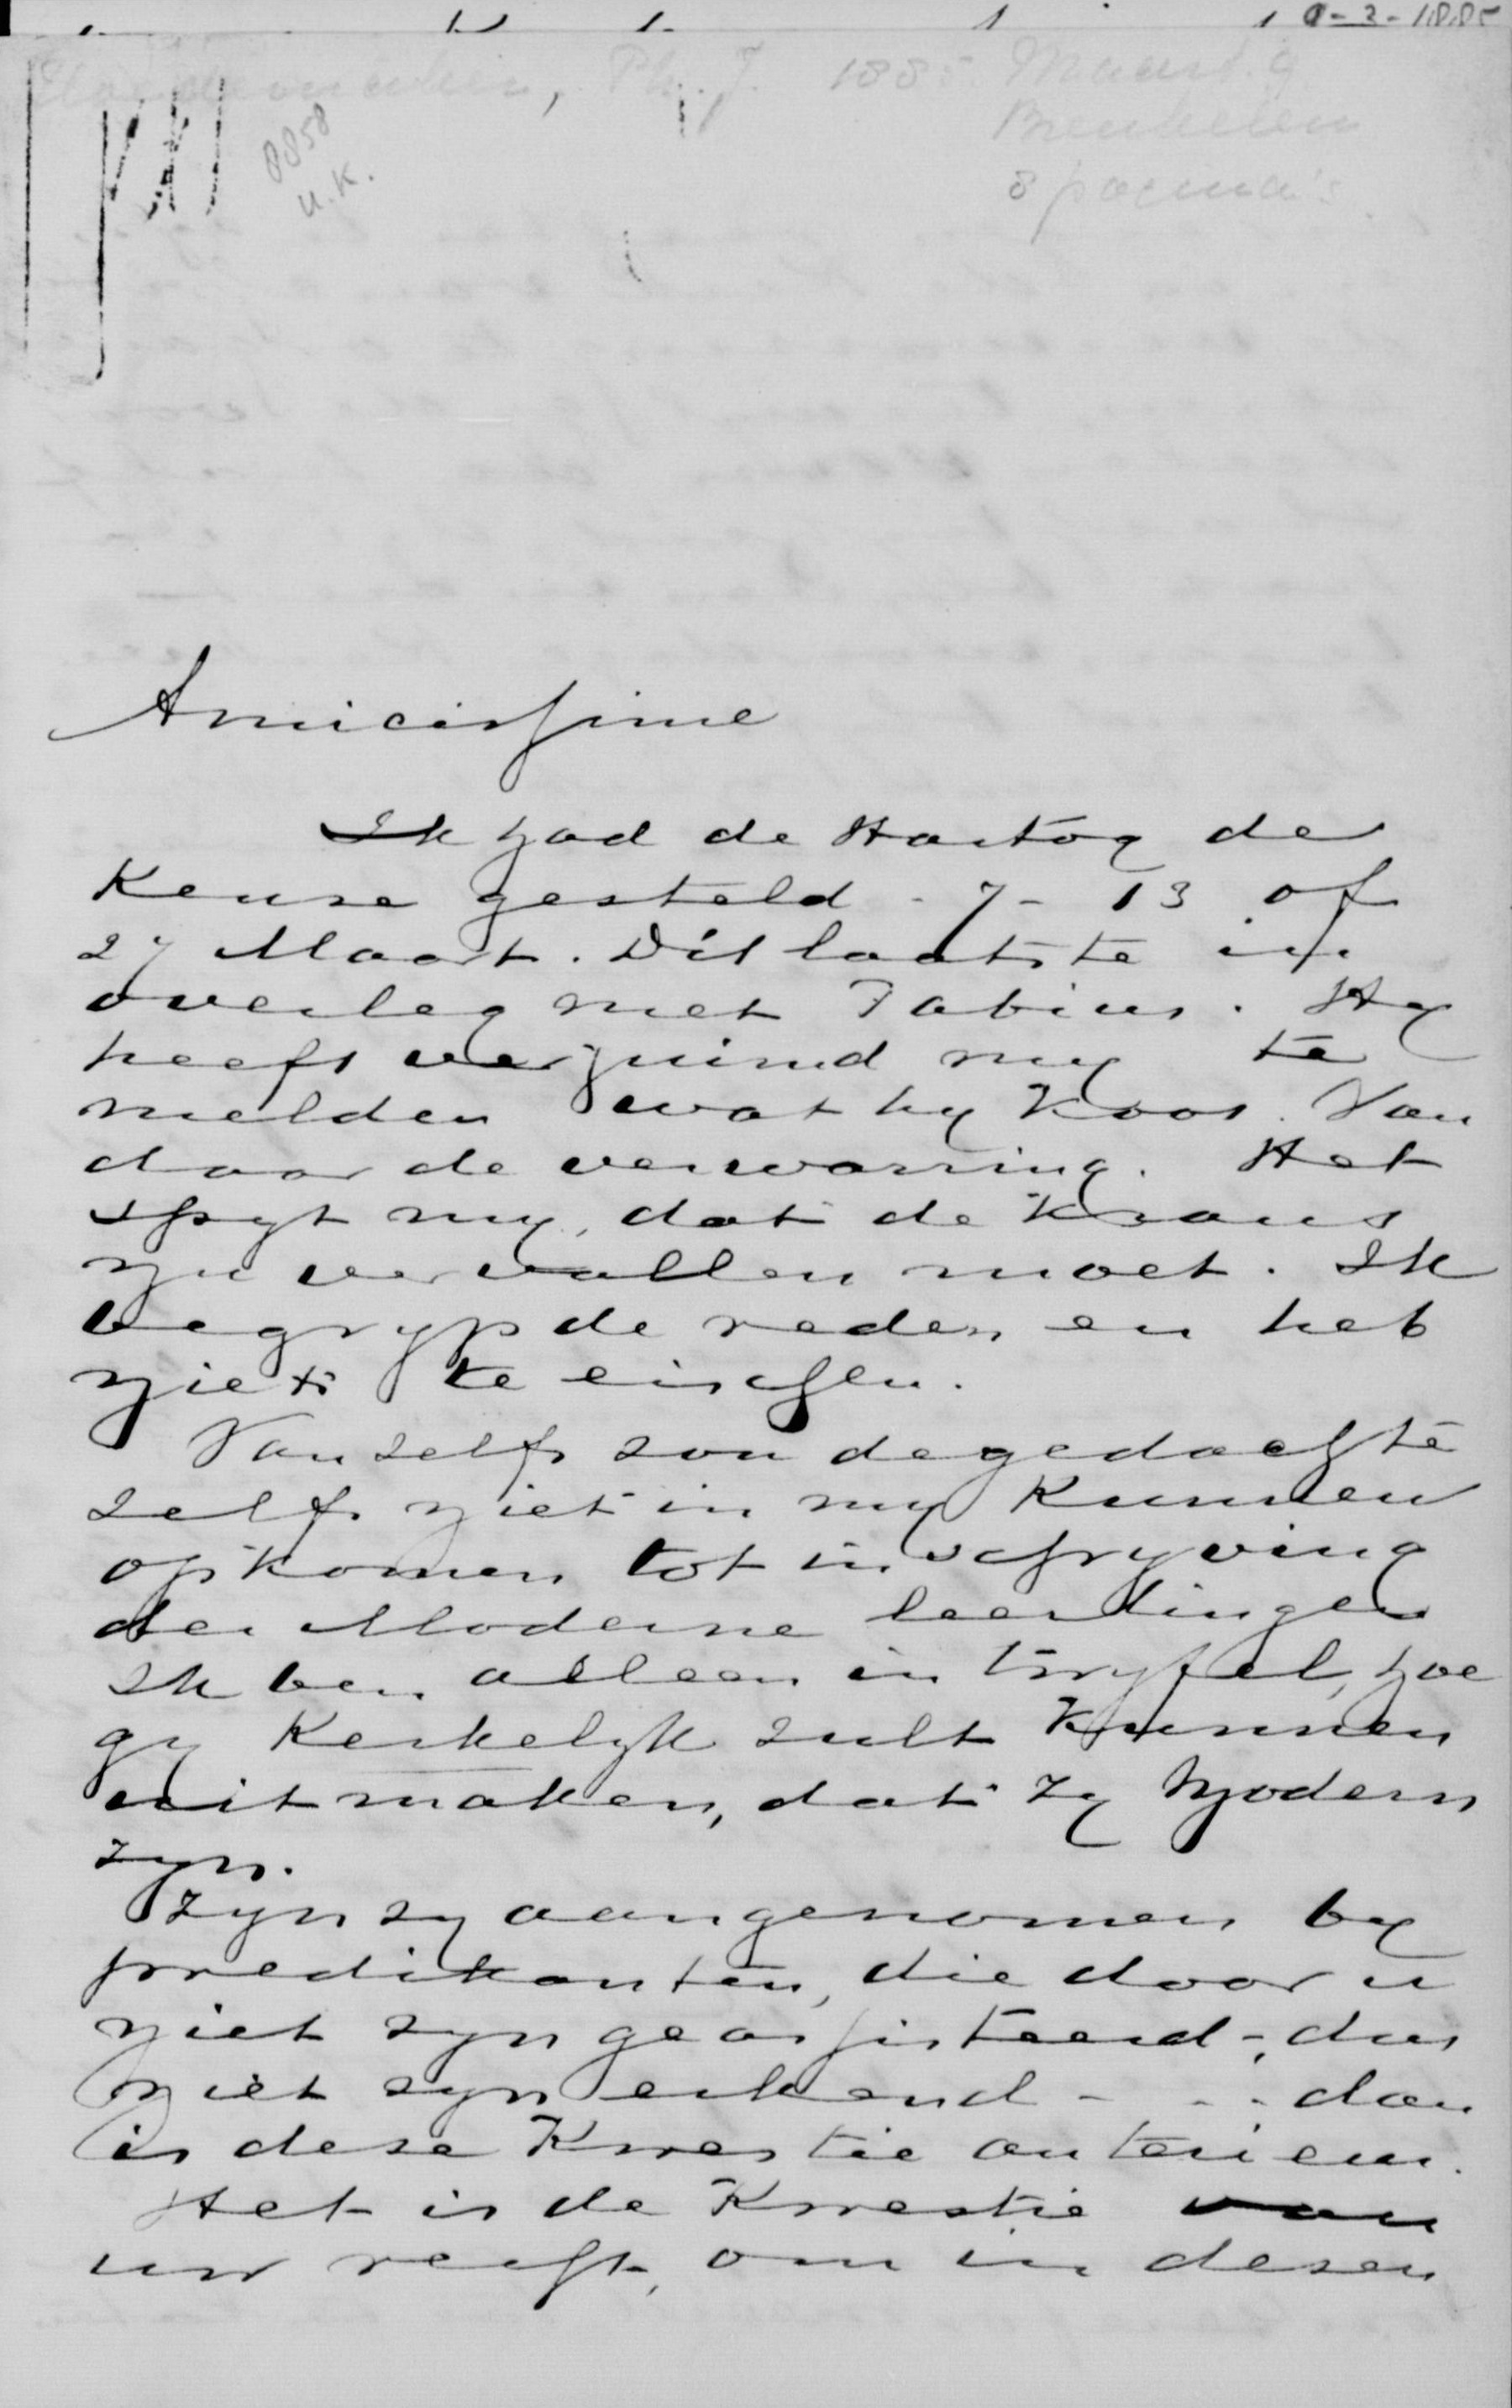 9-3-1885
Ph. J. 1885 Maart 9
Breukelen
8 pagina's
8858
U.K.
Amicissime
Ik had de Hartog de
keuze gesteld - 7 - 13 of
27 Maart. Dit laatste in
overleg met Fabius. Hy
heeft verzuimd my te
melden wat hy koos. Van
daar de verwarring. Het
spyt my, dat de Krans
nu vervallen moet. Ik
begryp de reden en heb
niets te eischen.
Van zelfs zou de gedachte
zelfs niet in my kunnen
opkomen tot inschryving
der Moderne leerlingen
Ik ben alleen in twyfel, hoe
gy kerkelyk zult kunnen
uitmaken, dat zy Modern
zyn.
Zyn zy aangenomen by
predikanten, die door u
niet zyn geassisteerd -, dus
niet zyn erkend - - - dan
is deze Kwestie anterieur.
Het is de Kwestie van
uw recht, om in dezen